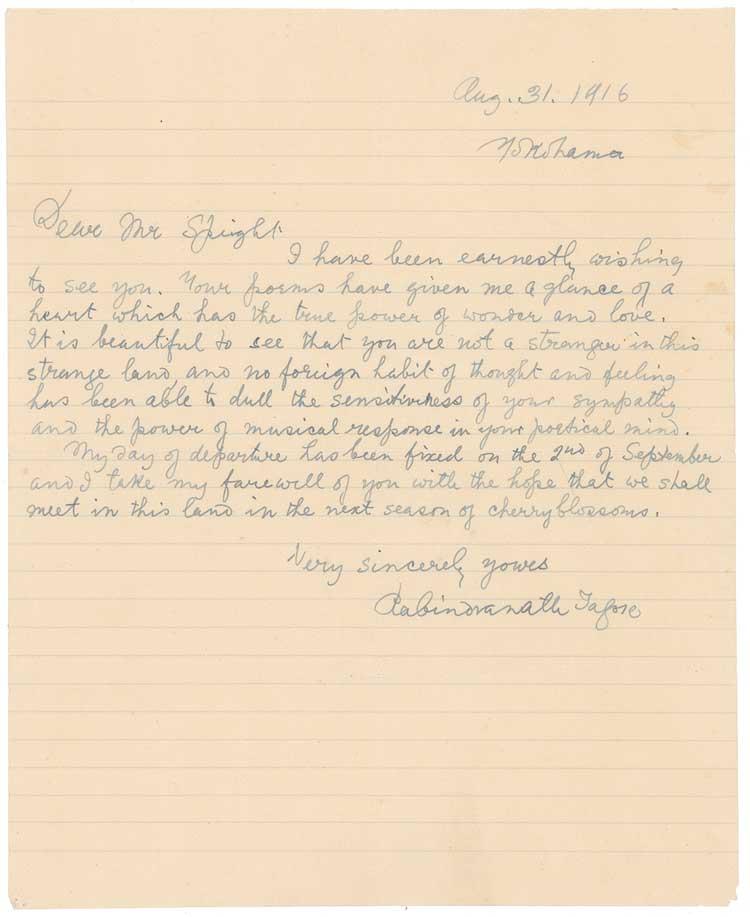 Aug. 31. 1916
Yokohama
Dear Mr Speight
I have been earnestly wishing
to see you. Your poems have given me a glance of a
heart which has the true power of wonder and love.
It is beautiful to see that you are not a stranger in this
strange land and no foreign habit of thought and feeling
has been able to dull the sensitiveness of your sympathy
and the power of musical response in your poetical mind.
My day of departure has been fixed on the 2nd of September
and I take my farewell of you with the hope that we shall
meet in this land in the next season of cherryblossoms.
Very sincerely yours
Rabindranath Tagore